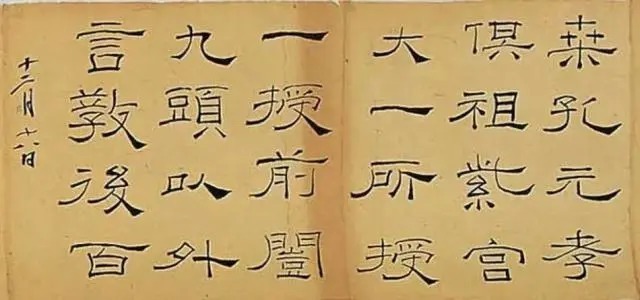 桒孔元孝
俱祖紫宮
大一所授
一授前闓
九頭以外
言教後百
十二月十六日